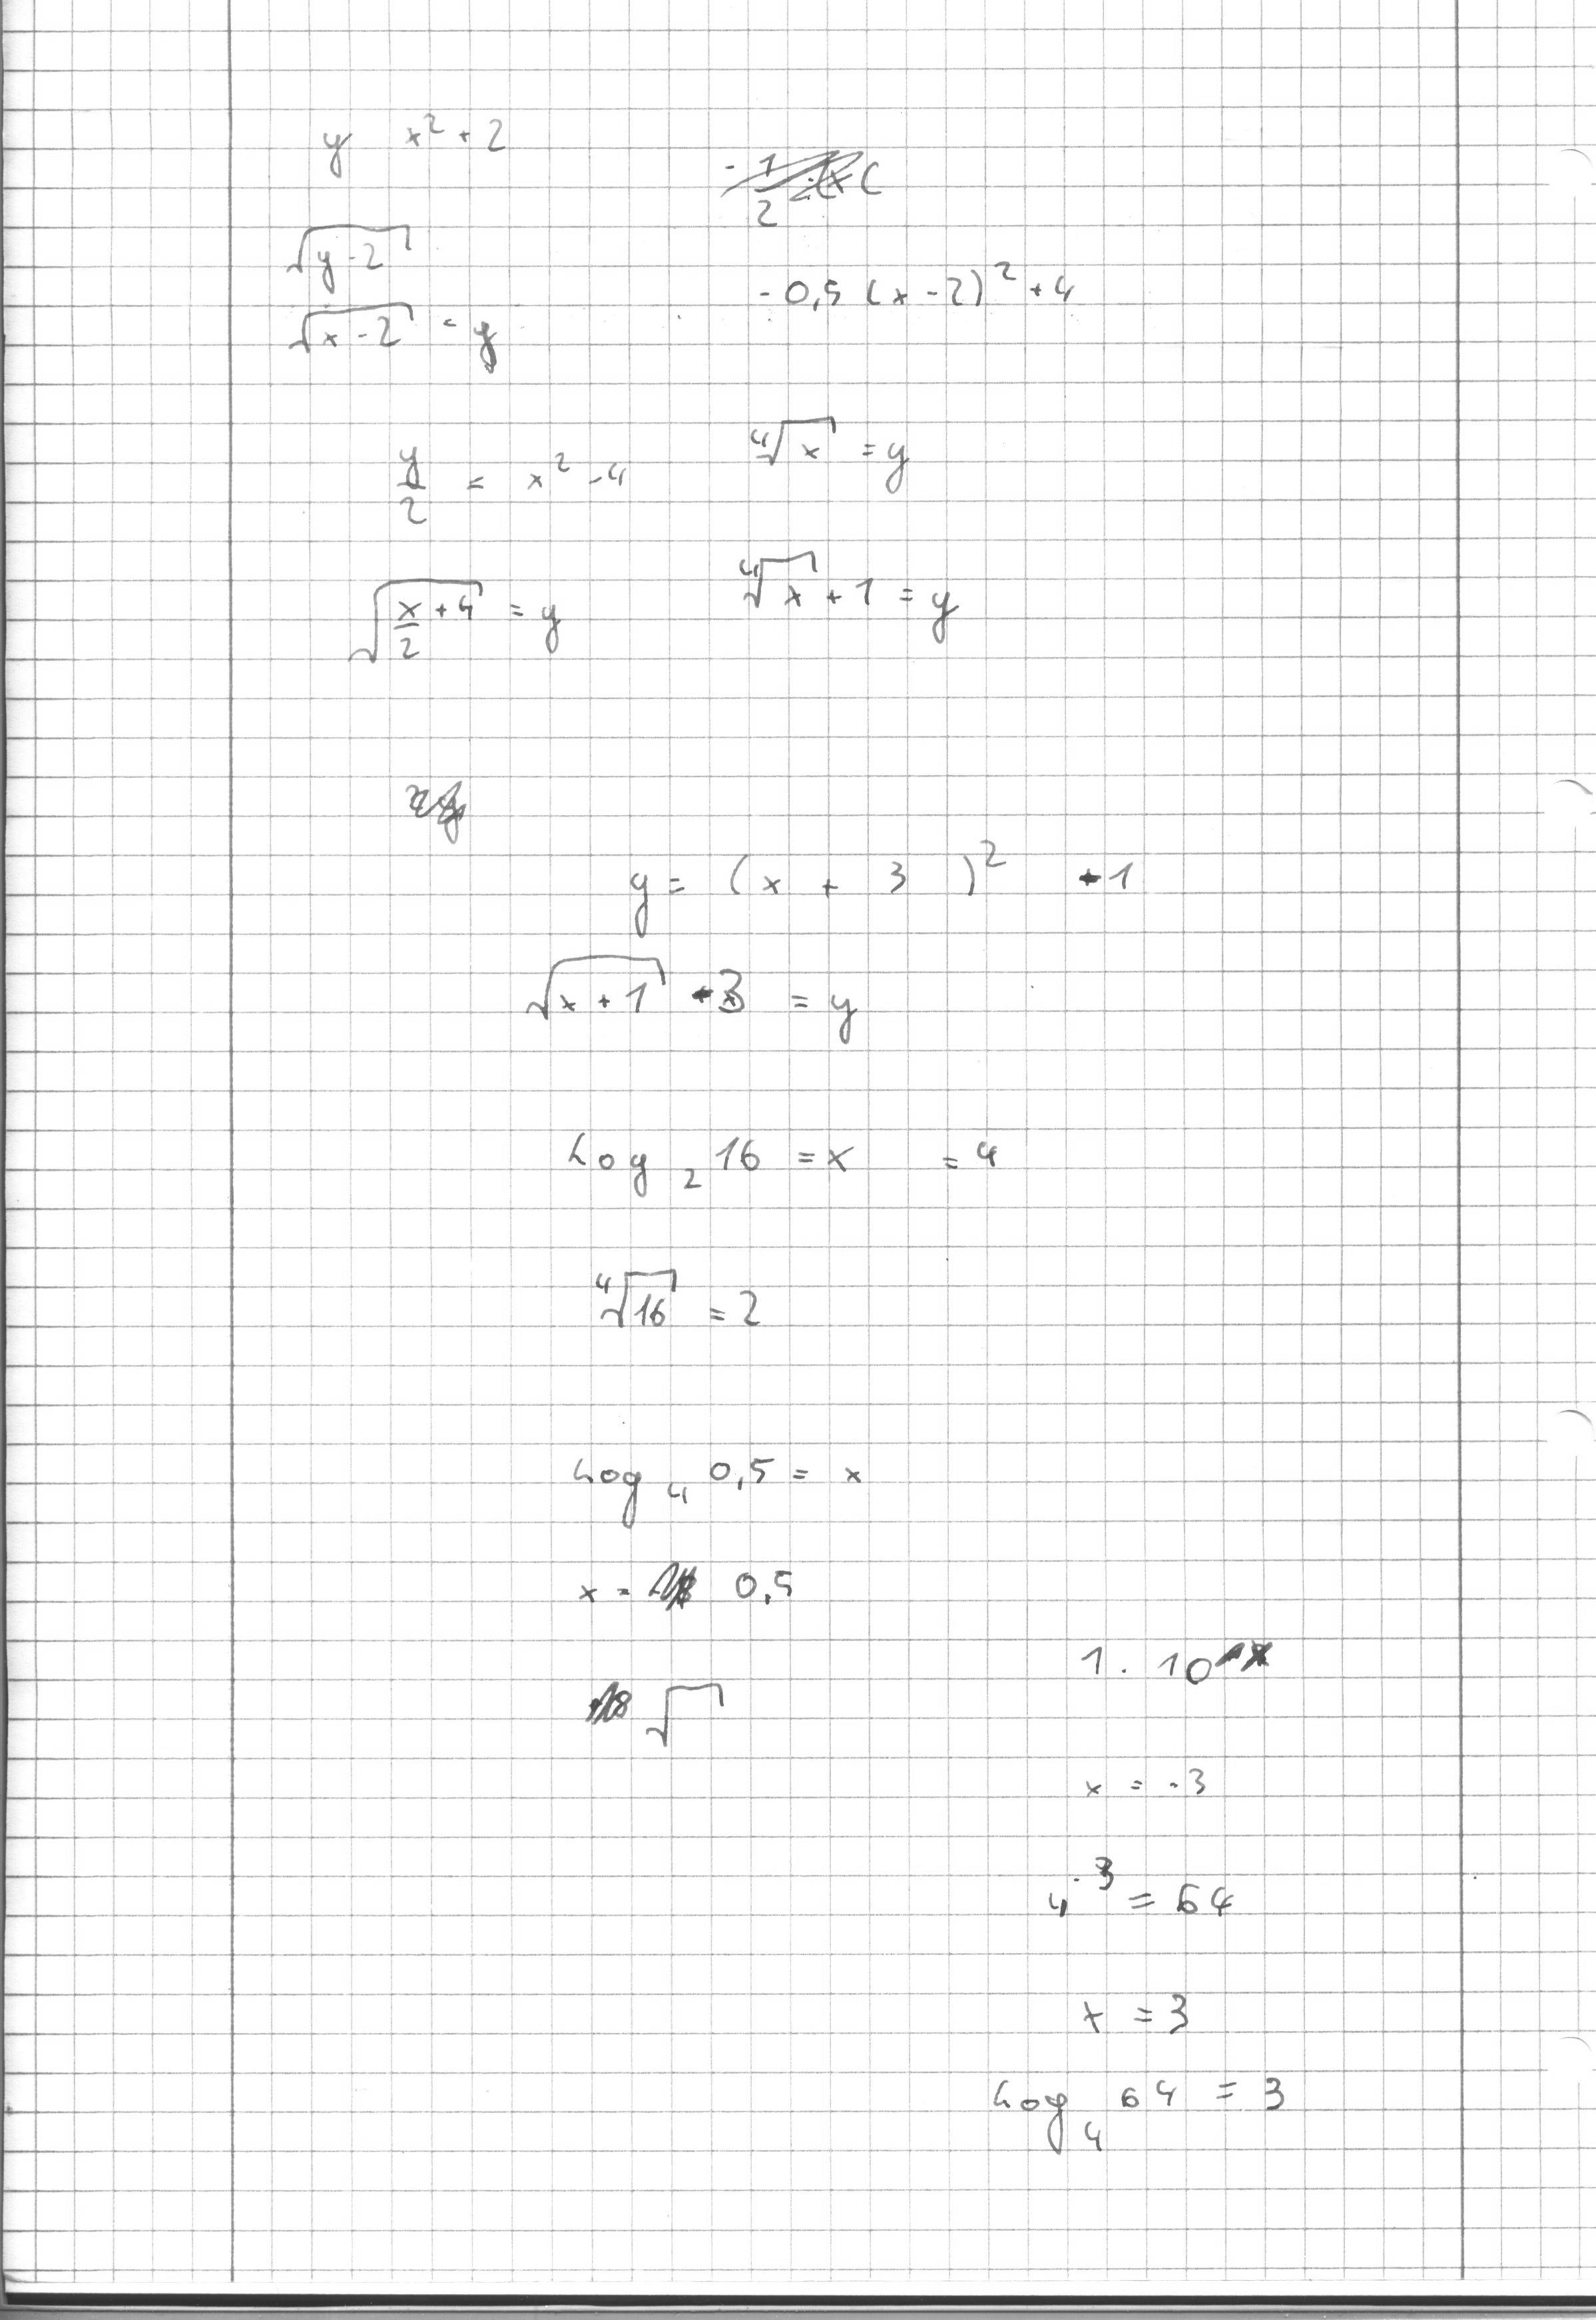 y x² + 2
- 1/2
√(y - 2)
- 0,5 (x - 2)² + 4
√(x - 2) = y
y/2 = x² - 4
⁴√x = y
√(x/2 + 4) = y
⁴√x + 1 = y
y = (x + 3)² - 1
√(x + 1) - 3 = y
Log₂ 16 = x = 4
⁴√16 = 2
Log₄ 0,5 = x
x = 0,5
1 · 10
√
x = -3
4³ = 64
x = 3
Log₄ 64 = 3